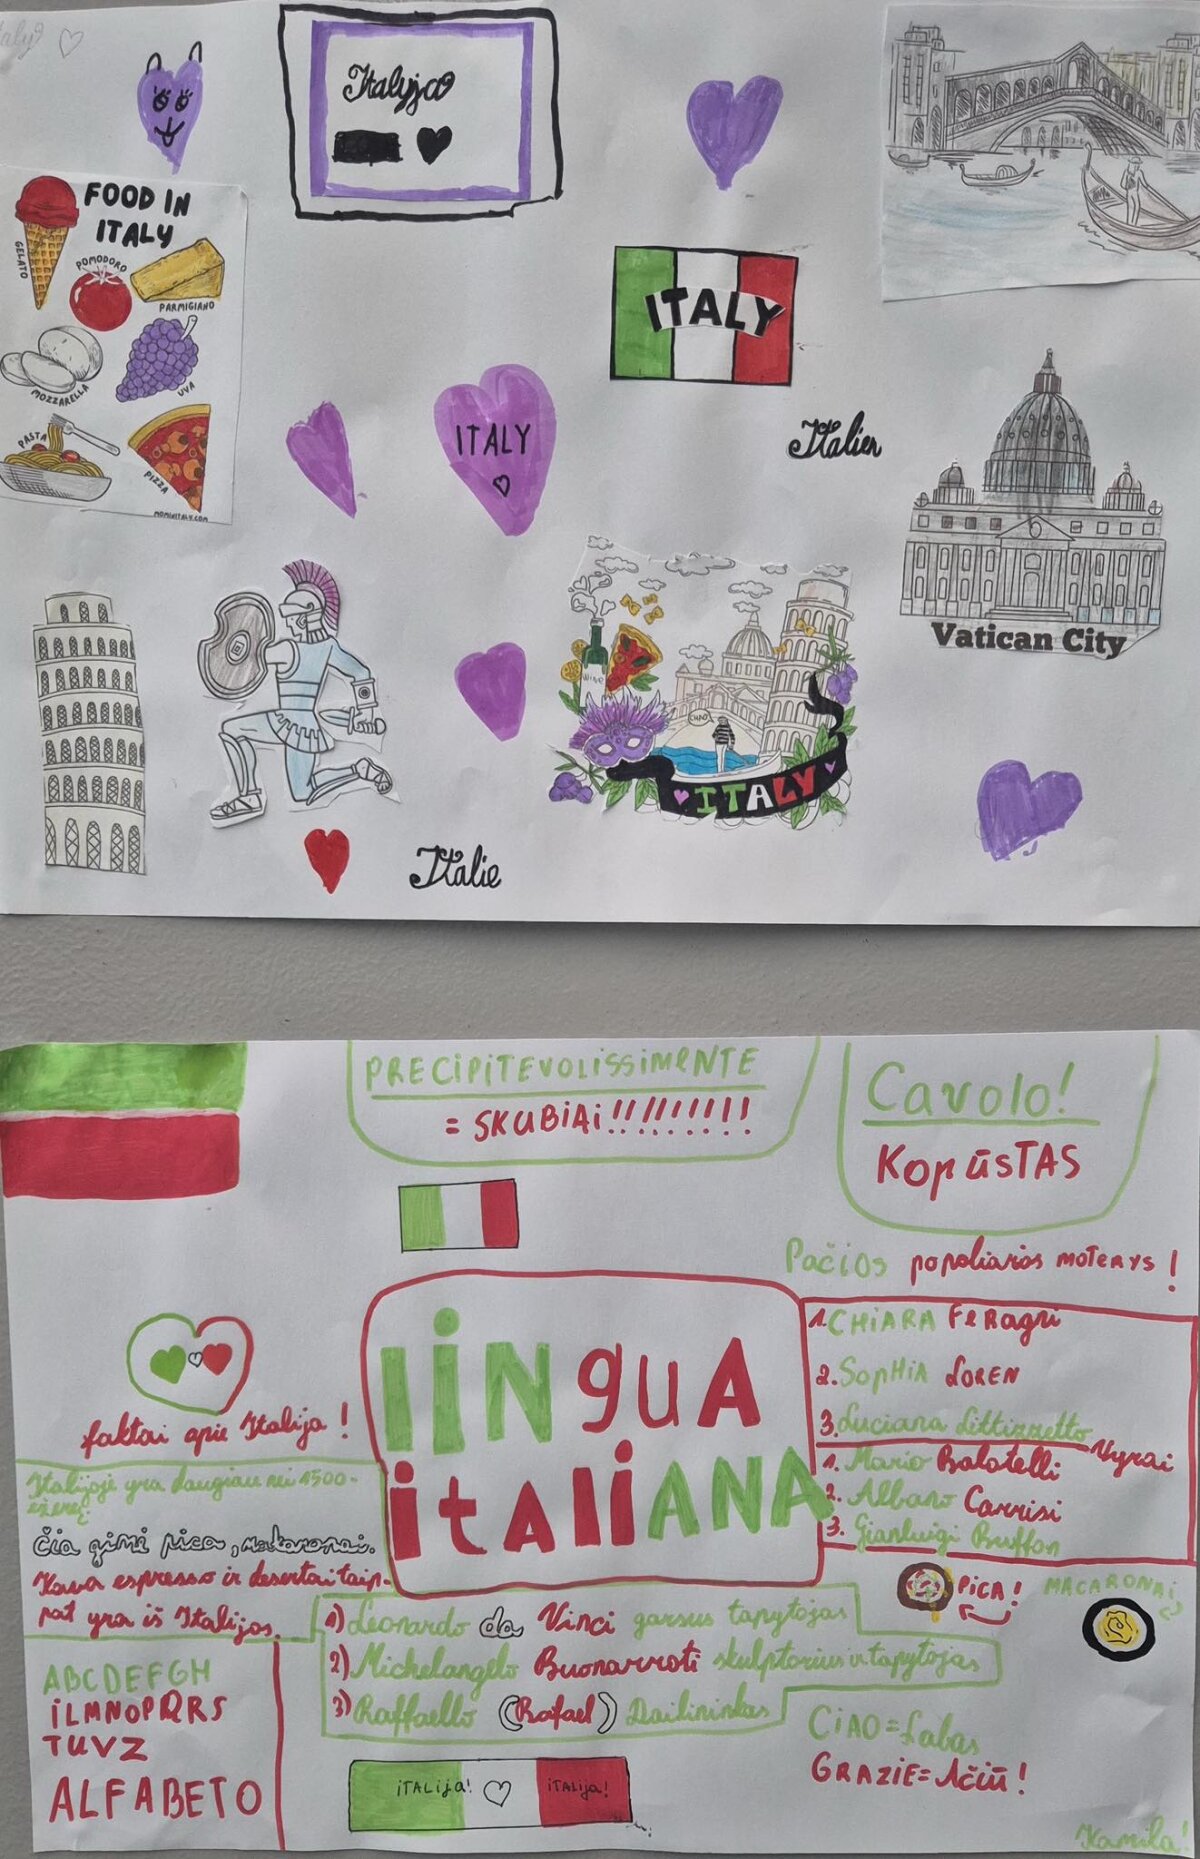 Italy
Italyja
FOOD IN
ITALY
GELATO
POMODORO
PARMIGIANO
MOZZARELLA
UVA
PASTA
PIZZA
MOMINITALY.COM
ITALY
ITALY
Italien
Vatican City
WINE
CIAO
ITALY
Italie
PRECIPITEVOLISSIMENTE
= SKUBIAI!!!!!!!!!!
Cavolo!
KopūsTAS
Pačios populiarios moterys!
1. CHiARA FeRagni
2. SopHiA LOREN
3. Luciana Littizzetto
Vyrai
1. Mario Balotelli
2. Albano Carrisi
3. Gianluigi Buffon
liNguA
itAliANA
faktai apie Italija!
Italijoje yra daugiau nei 1500
ežerų
čia gimė pica, makaronai.
Kava espresso ir desertai taip-
pat yra iš Italijos.
PiCA!
MACARONAi
1) Leonardo da Vinci garsus tapytojas
2) Michelangelo Buonarroti skulptorius ir tapytojas
3) Raffaello (Rafael) Dailininkas
ABCDEFGH
iLMNOPQRS
TUVZ
ALFABETO
CiAO=Labas
GRAZIE=Ačiū!
iTALija! iTALija!
Kamila!